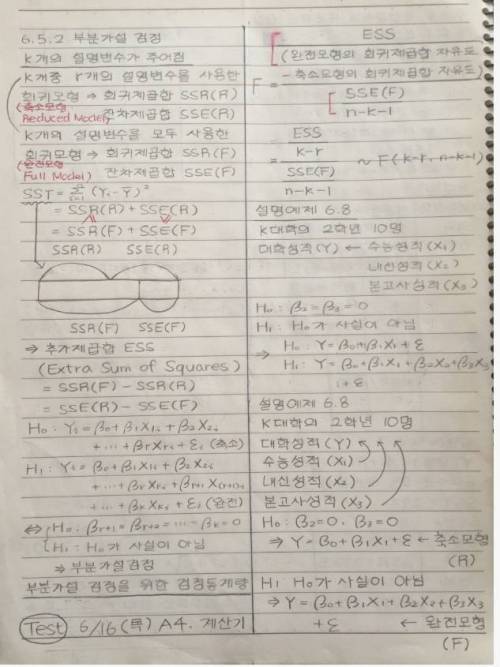 6.5.2 부분가설 검정
k개의 설명변수가 주어짐
k개중 r개의 설명변수를 사용한
회귀모형 → 회귀제곱합 SSR(R)
(축소모형
Reduced Model) 잔차제곱합 SSE(R)
k개의 설명변수를 모두 사용한
회귀모형 → 회귀제곱합 SSR(F)
(완전모형
Full Model) 잔차제곱합 SSE(F)
SST = Σ(Yi - Ȳ)²
= SSR(R) + SSE(R)
= SSR(F) + SSE(F)
SSR(R) SSE(R)
SSR(F) SSE(F)
⇒ 추가제곱합 ESS
(Extra Sum of Squares)
= SSR(F) - SSR(R)
= SSE(R) - SSE(F)
H₀ : Yi = β₀ + β₁X₁i + β₂X₂i
+ ... + βrXri + εi (축소)
H₁ : Yi = β₀ + β₁X₁i + β₂X₂i
+ ... + βrXri + βr+1 X(r+1)i
+ ... + βkXki + εi (완전)
⇔ H₀ : βr+1 = βr+2 = ... = βk = 0
H₁ : H₀가 사실이 아님
⇒ 부분가설 검정
부분가설 검정을 위한 검정통계량
Test 6/16 (목) A4. 계산기
ESS
(완전모형의 회귀제곱합 자유도)
- 축소모형의 회귀제곱합 자유도)
F =
SSE(F)
n-k-1
ESS
k-r
= ~ F(k-r, n-k-1)
SSE(F)
n-k-1
설명예제 6.8
K대학의 2학년 10명
대학성적(Y) ← 수능성적(X₁)
내신성적(X₂)
본고사성적(X₃)
H₀ : β₂ = β₃ = 0
H₁ : H₀가 사실이 아님
⇒ H₀ : Y = β₀ + β₁X₁ + ε
H₁ : Y = β₀ + β₁X₁ + β₂X₂ + β₃X₃
+ ε
설명예제 6.8
K대학의 2학년 10명
대학성적(Y)
수능성적(X₁)
내신성적(X₂)
본고사성적(X₃)
H₀ : β₂=0, β₃=0
⇒ Y = β₀ + β₁X₁ + ε ← 축소모형
(R)
H₁ H₀가 사실이 아님
⇒ Y = β₀ + β₁X₁ + β₂X₂ + β₃X₃
+ ε ← 완전모형
(F)